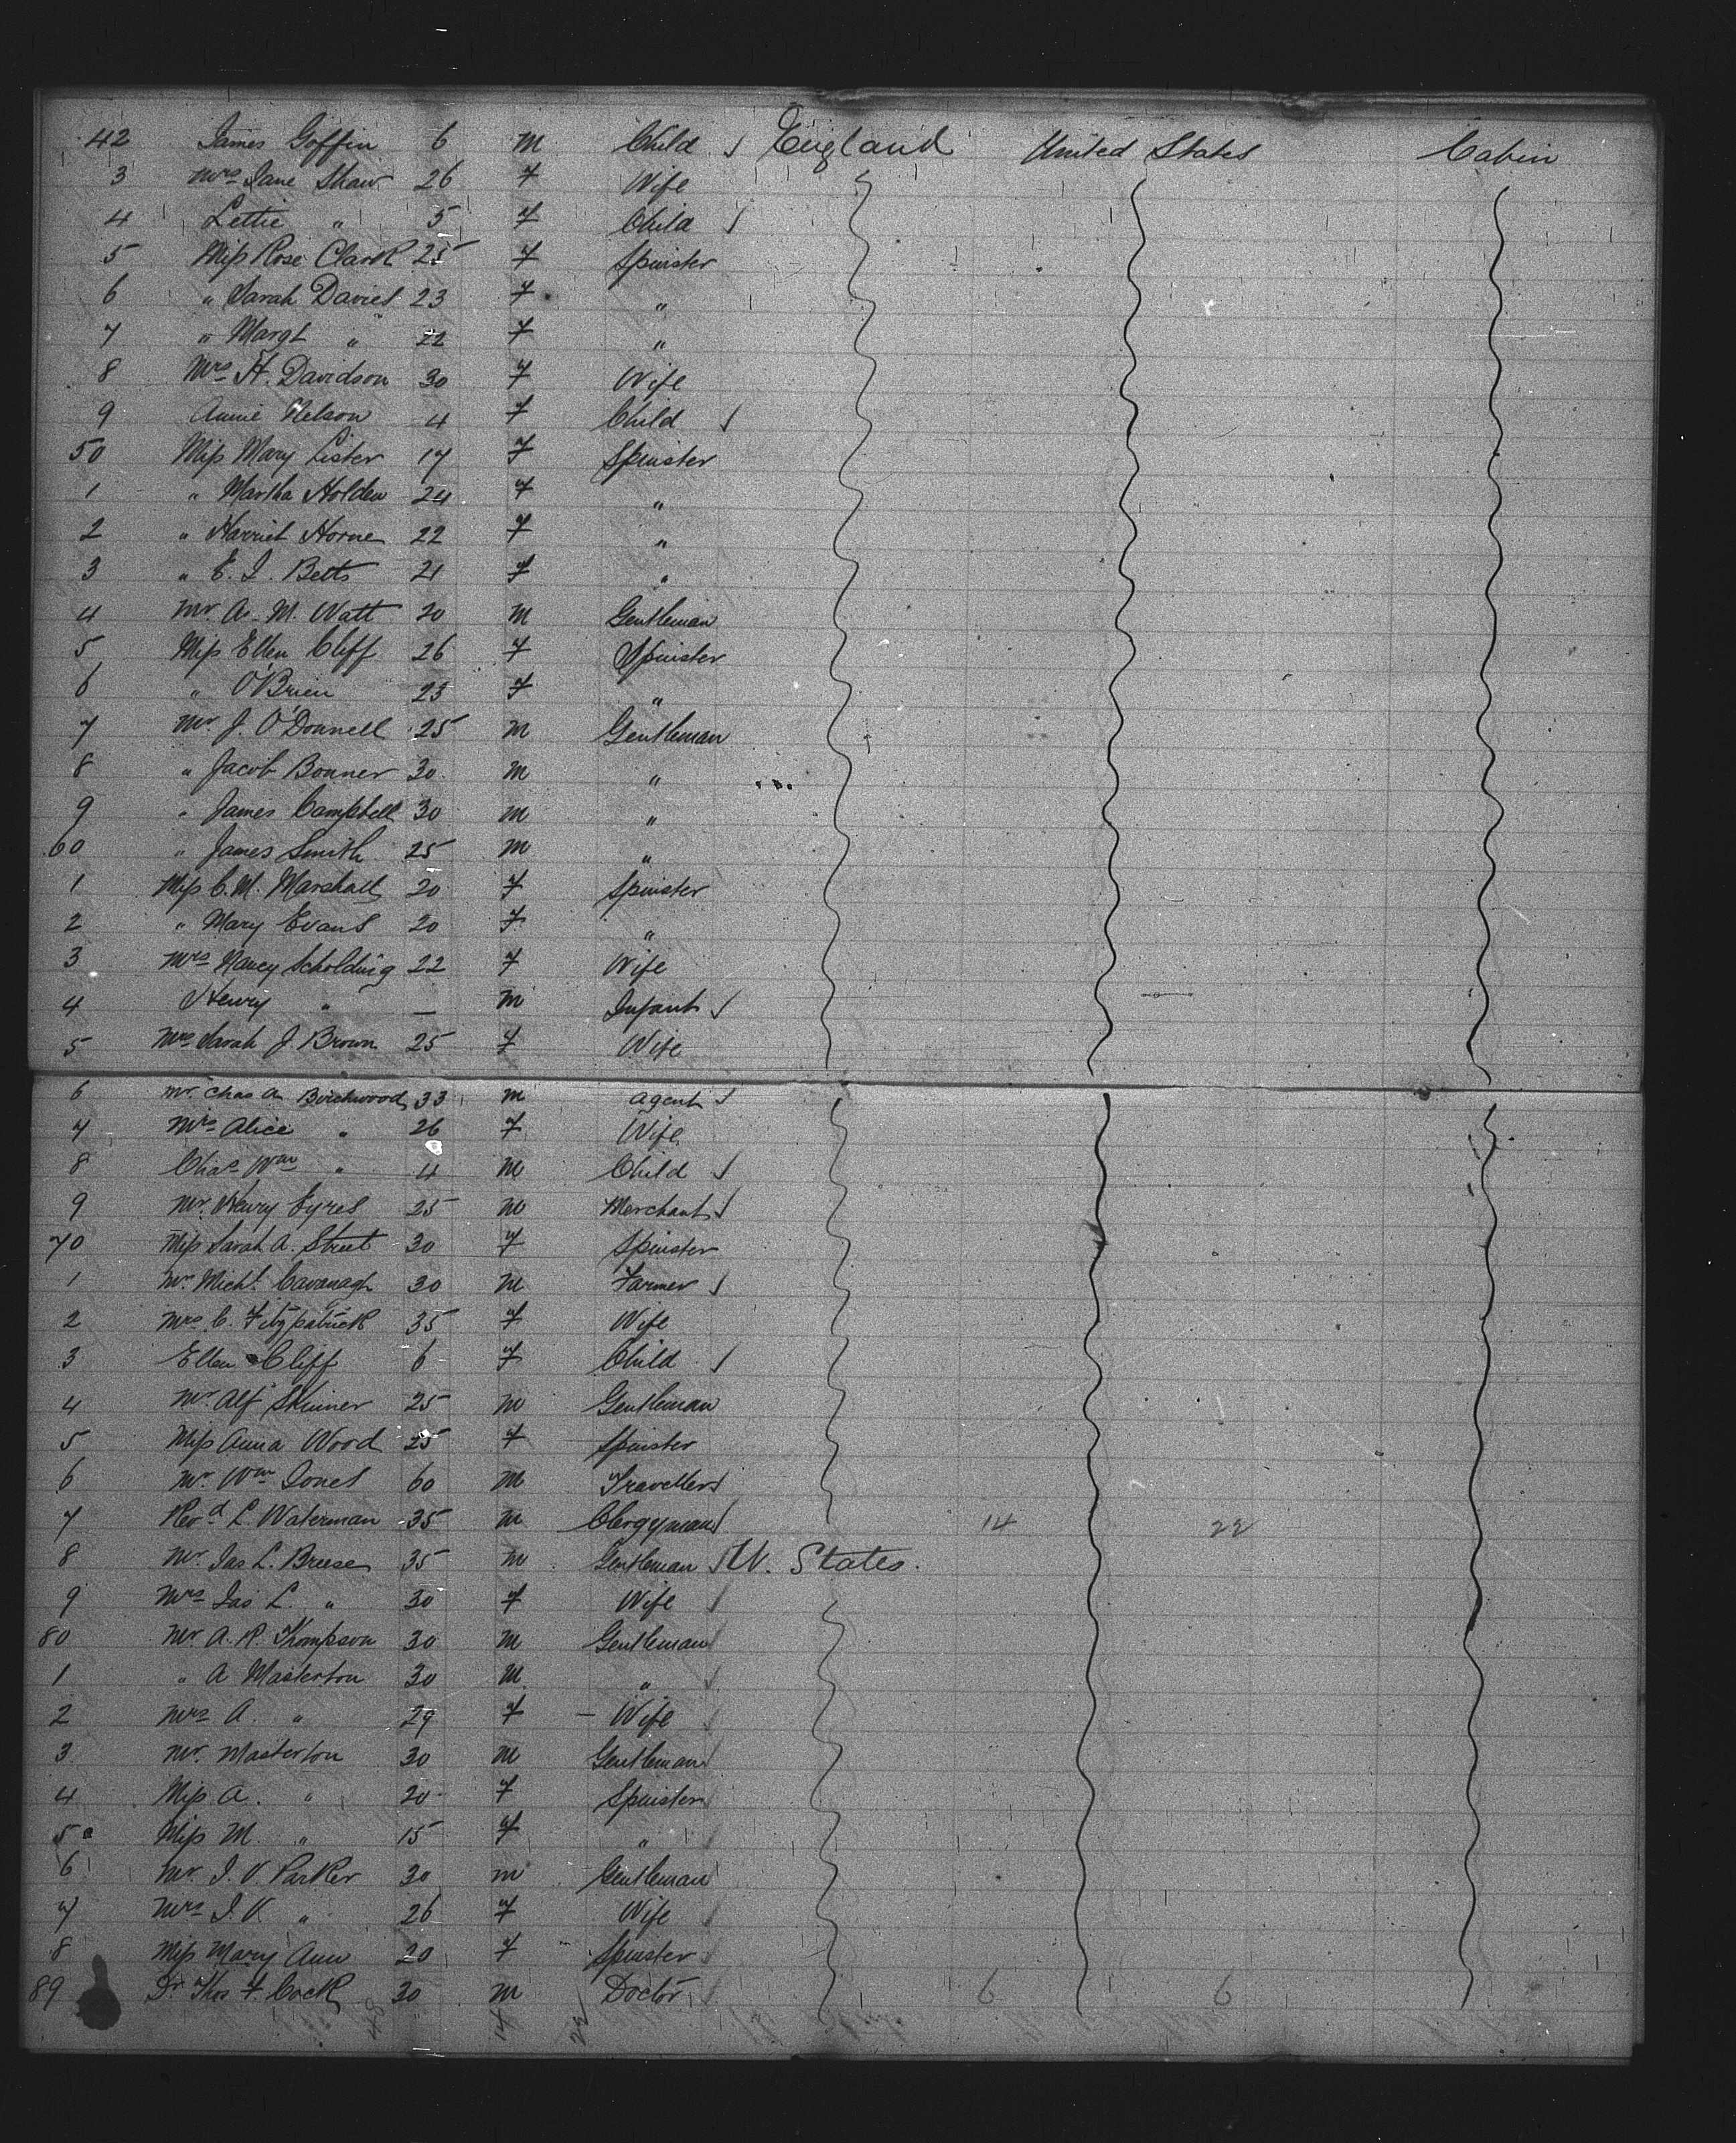 42 James Goffin 6 m Child England United States Cabin
3 Mrs Jane Shaw 26 F Wife
4 Lettie " 5 F Child
5 Miss Rose Clark 25 F Spinster
6 " Sarah Davies 23 F "
7 " Margt " 22 F "
8 Mrs H. Davidson 30 F Wife
9 Annie Nelson 4 F Child
50 Miss Mary Lister 17 F Spinster
1 " Martha Holden 24 F "
2 " Harriet Horne 22 F "
3 " E. J. Betts 21 F "
4 Mr A. M. Watt 20 m Gentleman
5 Miss Ellen Cliff 26 F Spinster
6 " O'Brien 23 F "
7 Mr J. O'Donnell 25 m Gentleman
8 " Jacob Bonner 30 m "
9 " James Campbell 30 m "
60 " James Smith 25 m "
1 Miss C. M. Marshall 20 F Spinster
2 " Mary Evans 20 F "
3 Mrs Nancy Scholding 22 F Wife
4 Henry " — m Infant
5 Mrs Sarah J. Brown 25 F Wife
6 Mr Chas A Birchwood 33 m Agent
7 Mrs Alice " 26 F Wife
8 Chas Wm " 4 m Child
9 Mr. Henry Eyres 25 m Merchant
70 Miss Sarah A. Street 30 F Spinster
1 Mr. Michl. Cavanagh 30 m Farmer
2 Mrs C. Fitzpatrick 35 F Wife
3 Ellen Cliff 6 F Child
4 Mr. Alf Skinner 25 m Gentleman
5 Miss Anna Wood 25 F Spinster
6 Mr. Wm Jones 60 m Traveller
7 Revd L. Waterman 35 m Clergyman 14 22
8 Mr. Jas L. Breese 35 m Gentleman U. States.
9 Mrs Jas L. " 30 F Wife
80 Mr A. R. Thompson 30 m Gentleman
1 " A Masterton 30 m "
2 Mrs A. " 29 F — Wife
3 Mr. Masterton 30 m Gentleman
4 Miss A. " 20 F Spinster
5 Miss M. " 15 F "
6 Mr. J. V. Parker 30 m Gentleman
7 Mrs J. V. " 26 F Wife
8 Miss Mary Ann 20 F Spinster
89 Dr Thos F. Cock 30 m Doctor 6 6
14 22